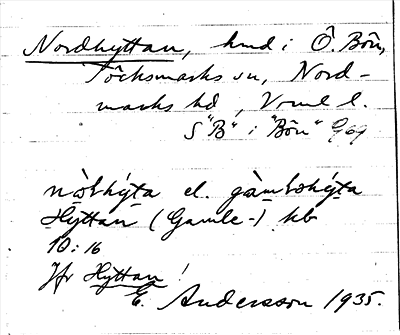 Nordhyttan, hmd i Ö. Bön,
Töcksmarks sn, Nord-
marks hd, Vrml l.
S "B" i "Bön" G69
nòṱhy̆ta el. gàmḷohy̆ta
Hyttan (Gamle-) kb
10:16
Jfr Hyttan!
E. Andersson 1935.